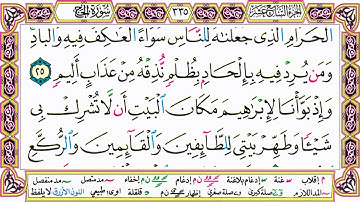 الجزء السابع عشر ٣٣٥ سورة الحج
الْحَرَامِ الَّذِى جَعَلْنَٰهُ لِلنَّاسِ سَوَآءً الْعَٰكِفُ فِيهِ وَالْبَادِ
وَمَن يُرِدْ فِيهِ بِإِلْحَادٍۭ بِظُلْمٍ نُّذِقْهُ مِنْ عَذَابٍ أَلِيمٍ ٢٥
وَإِذْ بَوَّأْنَا لِإِبْرَٰهِيمَ مَكَانَ الْبَيْتِ أَن لَّا تُشْرِكْ بِى
شَيْـًٔا وَطَهِّرْ بَيْتِىَ لِلطَّآئِفِينَ وَالْقَآئِمِينَ وَالرُّكَّعِ